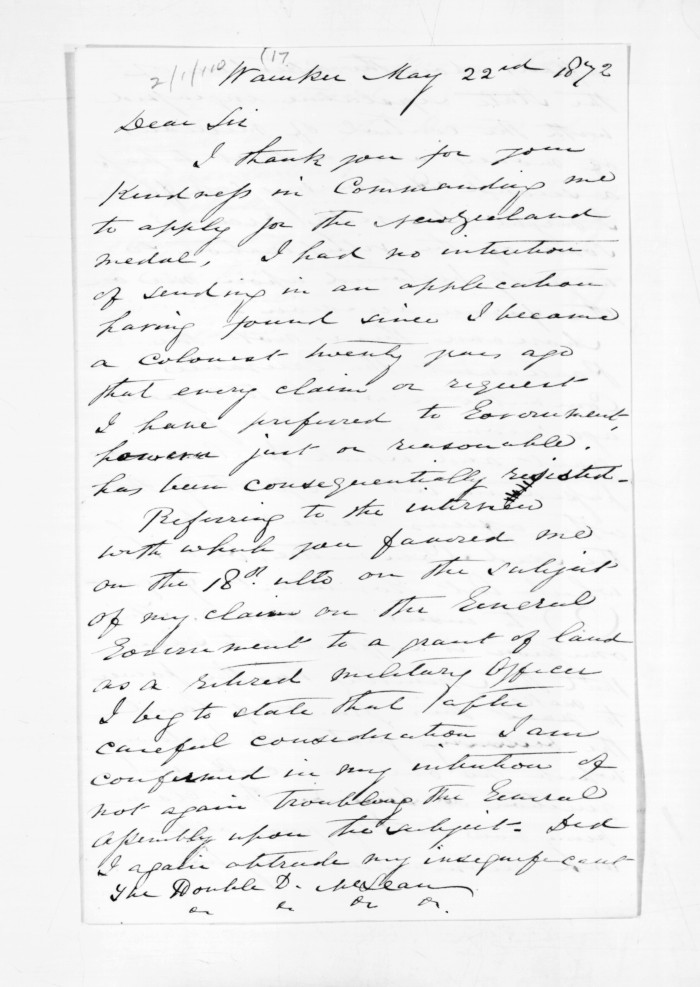 2/1/110 (17
May 22nd 1872
Dear Sir
I thank you for your
Kindness in Commanding me
to apply for the New Zeeland
medal, I had no intention
of sending in an application
having found since I became
a colonist twenty years ago
that every claim or request
I have preferred to Government,
however just or reasonable,
has been consequentially rejected -
Referring to the interview
with which you favored me
on the 18th ulto on the subject
of my claim on the General
Government to a grant of land
as a retired military Officer
I beg to state that after
careful consideration I am
confirmed in my intention of
not again troubling the General
Assembly upon the subject. Did
I again obtrude my insignificant
The D. McLean